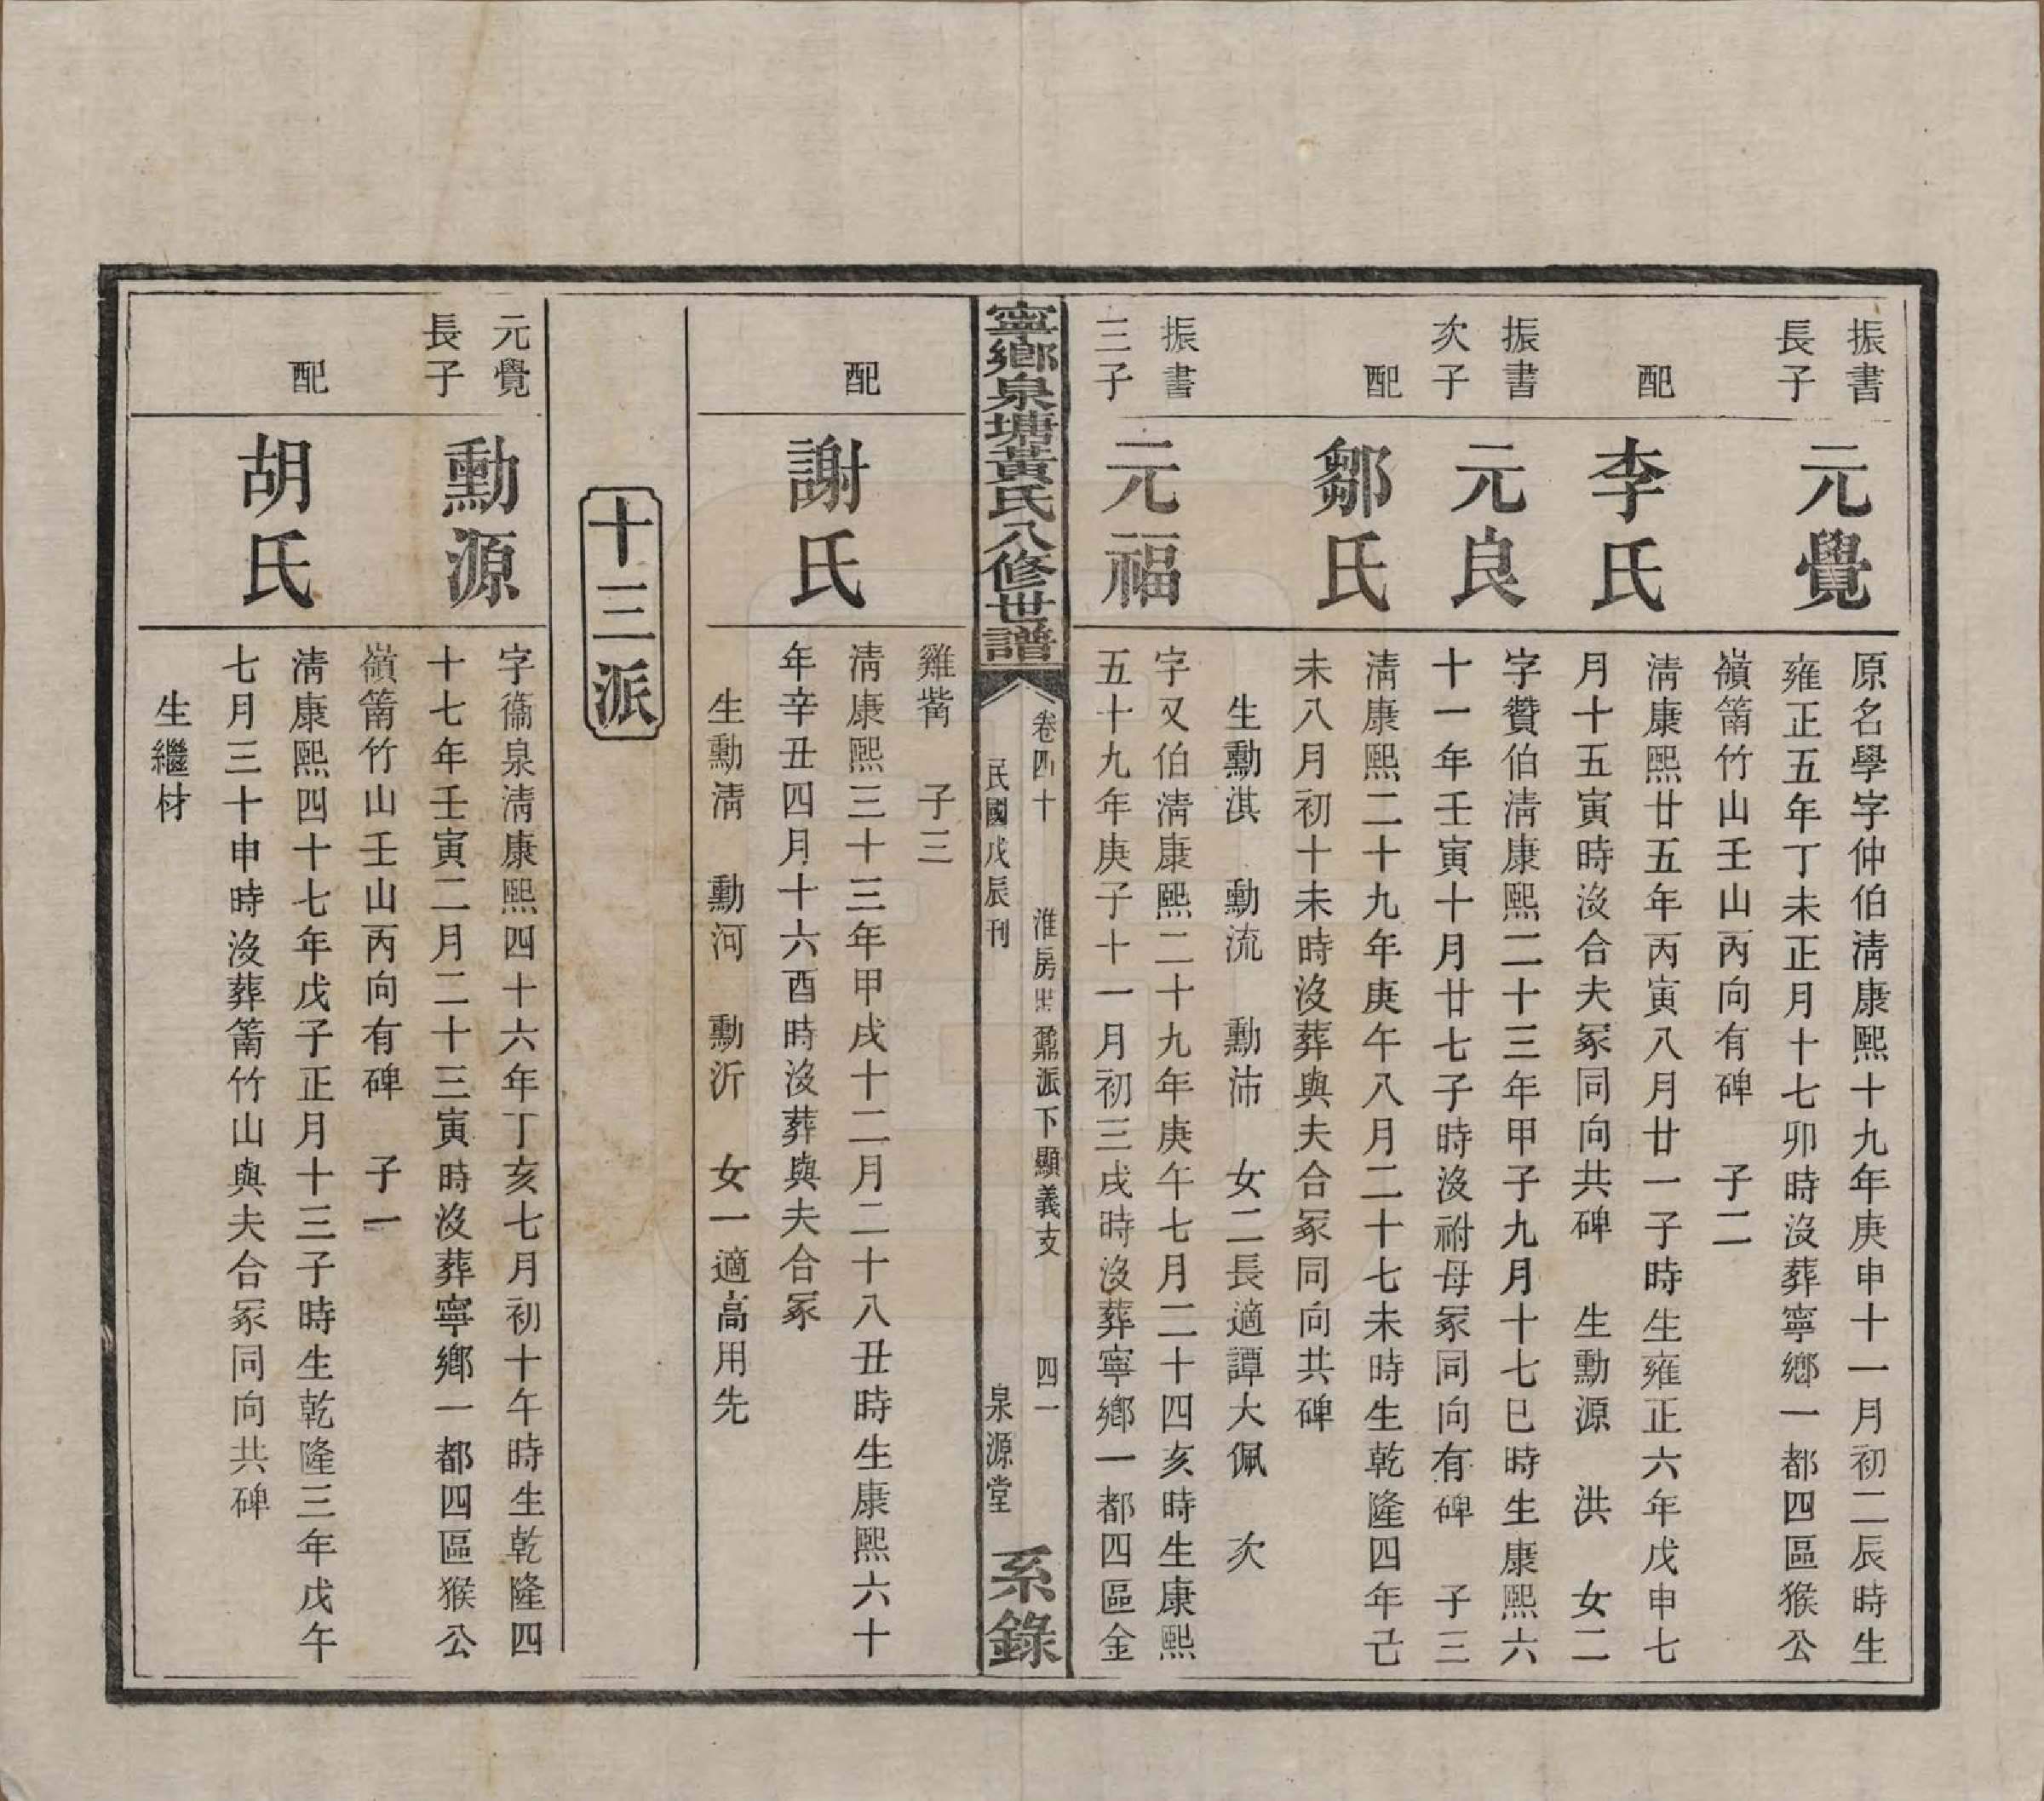 振書
長子
元覺
原名學字仲伯淸康熙十九年庚申十一月初二辰時生
雍正五年丁未正月十七卯時沒葬寧鄉一都四區猴公
嶺筩竹山壬山丙向有碑 子二
配
李氏
淸康熙廿五年丙寅八月廿一子時生雍正六年戊申七
月十五寅時沒合夫冢同向共碑 生勳源 洪 女二
振書
次子
元良
字贊伯淸康熙二十三年甲子九月十七巳時生康熙六
十一年壬寅十月廿七子時沒祔母冢同向有碑 子三
配
鄒氏
淸康熙二十九年庚午八月二十七未時生乾隆四年己
未八月初十未時沒葬與夫合冢同向共碑
生勳淇 勳流 勳沛 女二長適譚大佩 次
振書
三子
元福
字又伯淸康熙二十九年庚午七月二十四亥時生康熙
五十九年庚子十一月初三戌時沒葬寧鄉一都四區金
寧鄉泉塘黃氏八修世譜
卷四十 淮房 鼐派下顯義支 四一
民國戊辰刊 泉源堂
系錄
雞觜 子三
配
謝氏
淸康熙三十三年甲戌十二月二十八丑時生康熙六十
年辛丑四月十六酉時沒葬與夫合冢
生勳淸 勳河 勳沂 女一適高用先
十三派
元覺
長子
勳源
字衞泉淸康熙四十六年丁亥七月初十午時生乾隆四
十七年壬寅二月二十三寅時沒葬寧鄉一都四區猴公
嶺筩竹山壬山丙向有碑 子一
配
胡氏
淸康熙四十七年戊子正月十三子時生乾隆三年戊午
七月三十申時沒葬筩竹山與夫合冢同向共碑
生繼材